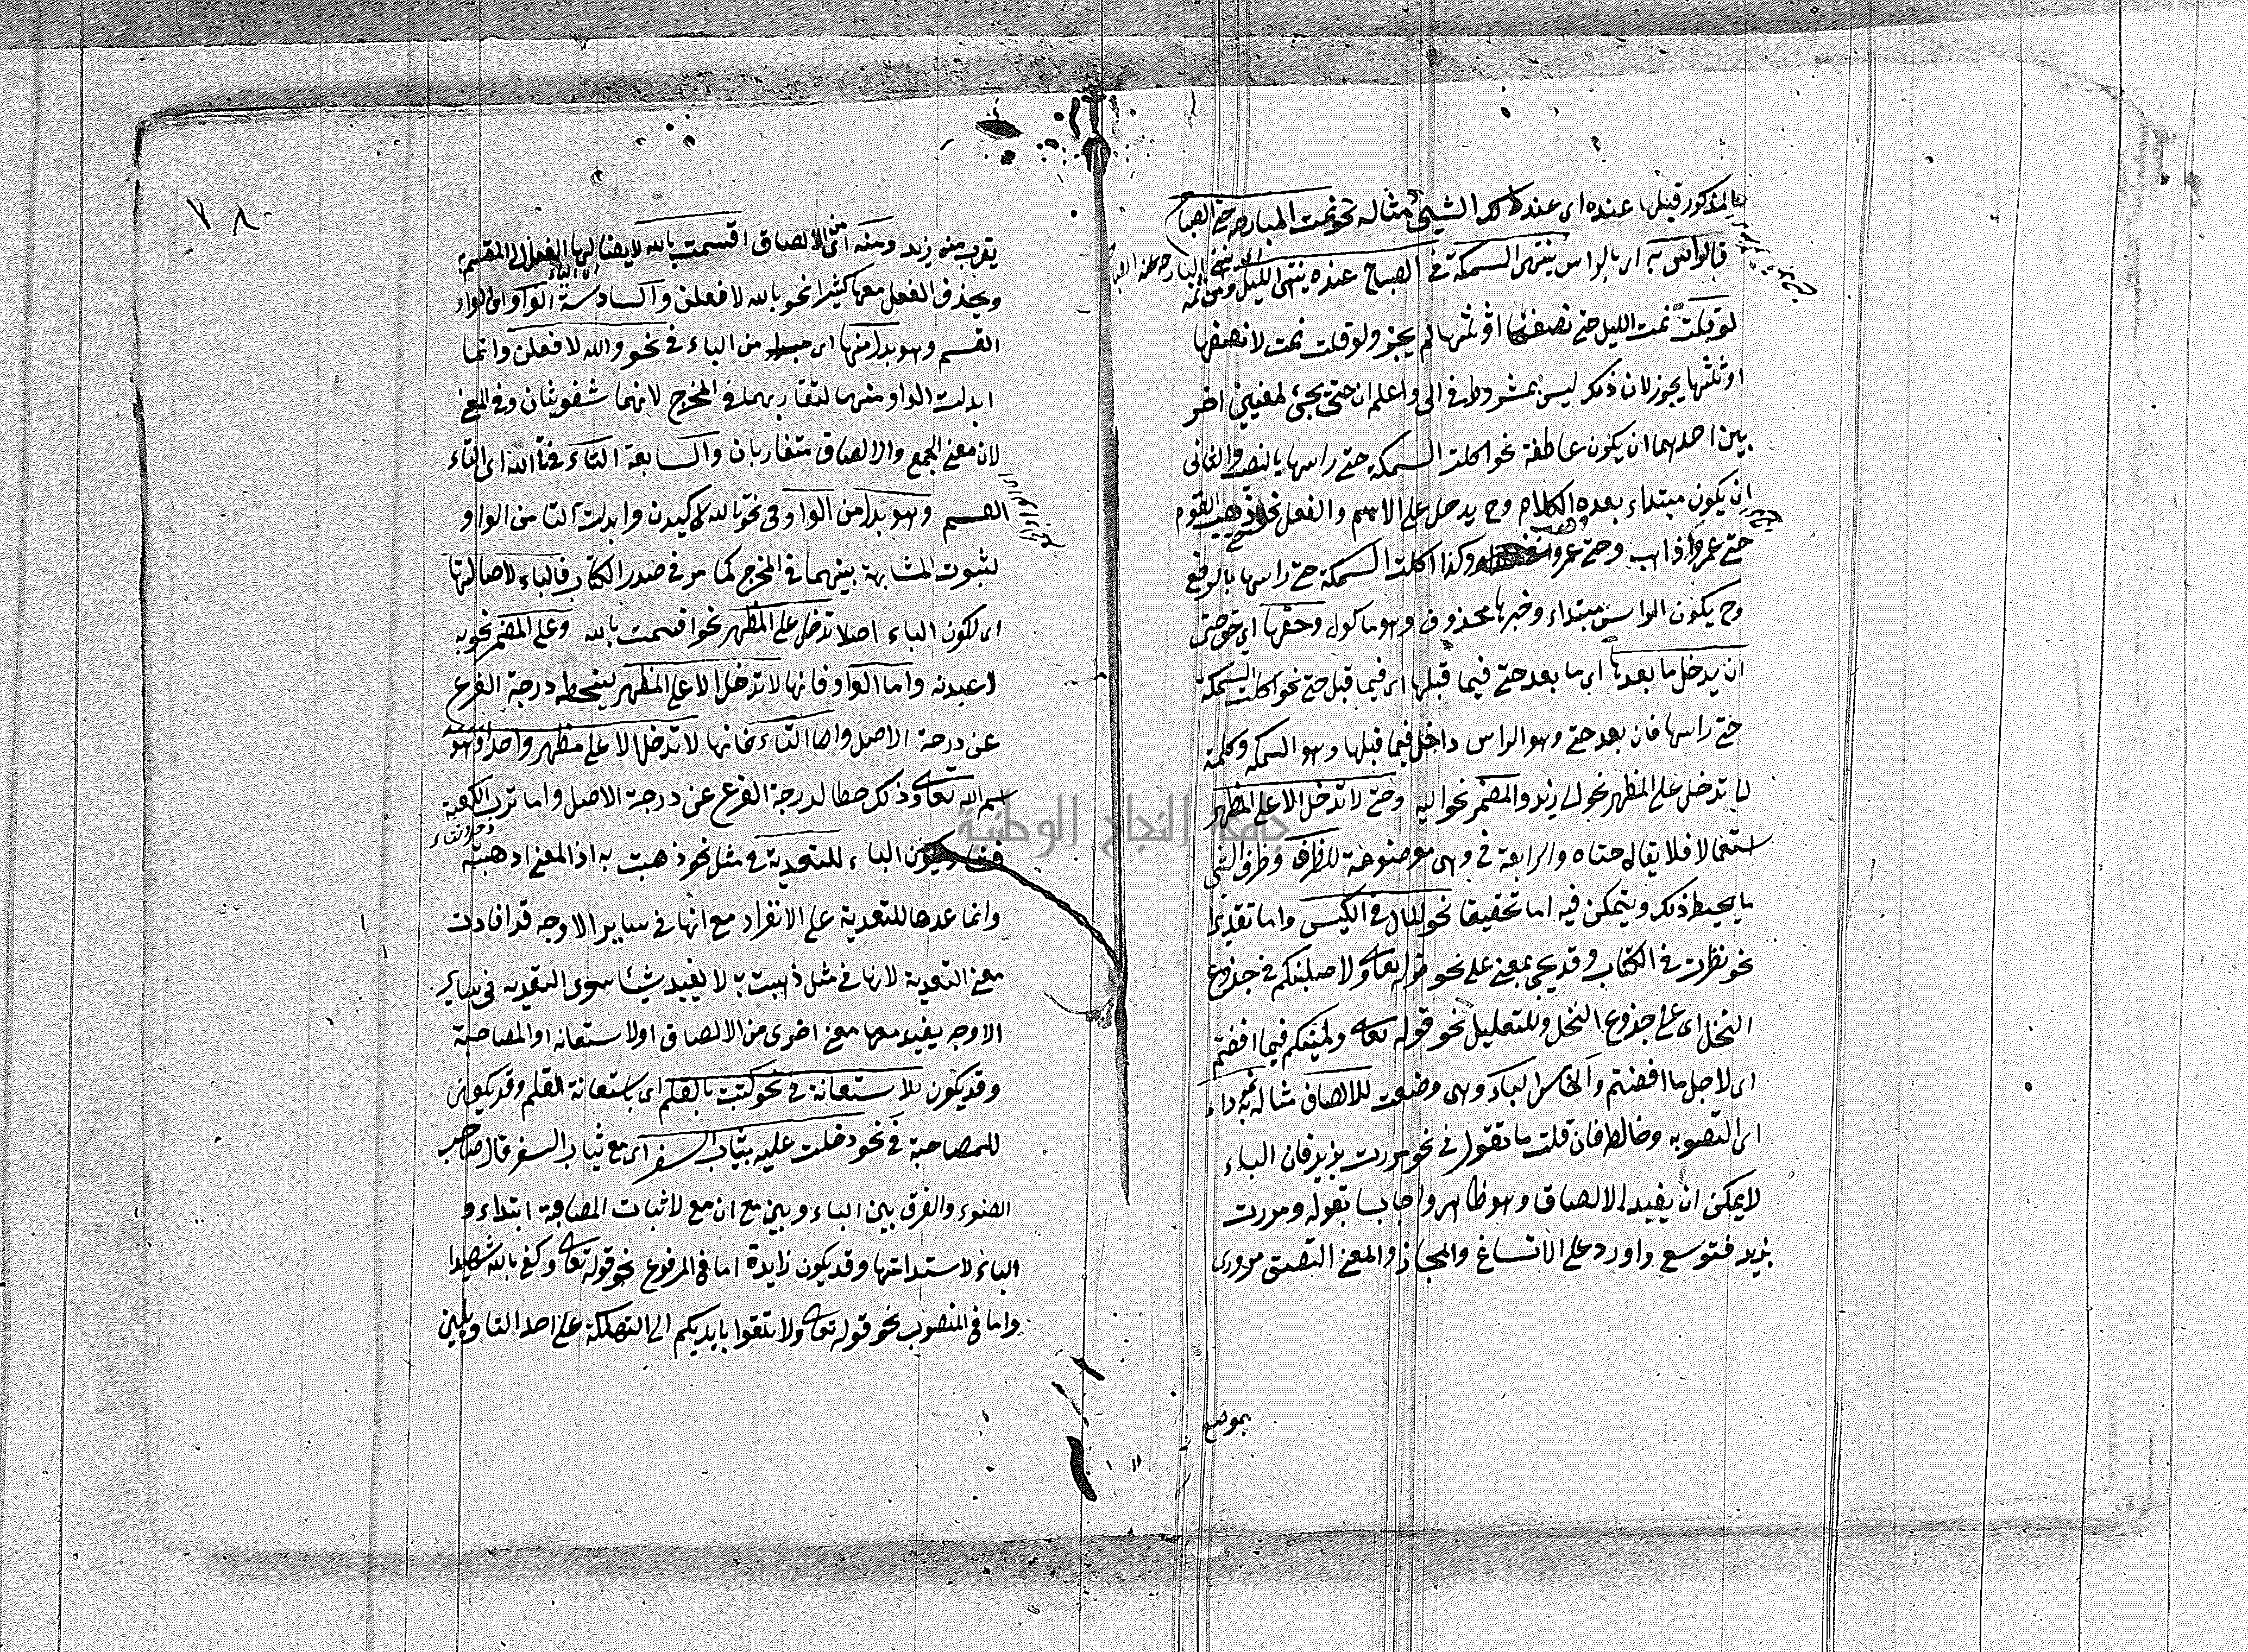 المذكور قبلها عنده اى عند ذلك الشيئ مثاله نحو نمت البارحة حتى الصباح
فالراس به اى بالراس ينتهى السمكة فى الصباح عنده ينتهى الليل ومن ثمه
لو قلت نمت الليل حتى نصفها او ثلثها لم يجز ولو قلت نمت لا نصفها
او ثلثها يجوز لان ذلك ليس بمشروط فى الى واعلم ان حتى يجئ لمعنيين اخر
بين احدهما ان يكون عاطفة نحو اكلت السمكة حتى راسها بالنصب والثانى
ان يكون مبتداء بعده الكلام وح يدخل على الاسم والفعل نحو ذهب القوم
حتى عمرو ذاهب وحتى عمرو وكذا اكلت السمكة حتى راسها بالرفع
وح يكون الراس مبتداء وخبرها محذوف وهو ماكول وحقها اى حق حتى
ان يدخل ما بعدها اى ما بعد حتى فيما قبلها اى فيما قبل حتى نحو اكلت السمكة
حتى راسها فان بعد حتى وهو الراس داخل فيما قبلها وهو السمكه وكلمة
لى تدخل على المظهر نحو الى زيد والمضمر نحو اليه وحتى لا تدخل الا على المظهر
استعمالا فلا يقال حتاه والرابعة فى وهى موضوعة للظرف وظرف الشئ
ما يحيط ذلك ويتمكن فيه اما تحقيقا نحو المال فى الكيس واما تقديرا
نحو نظرت فى الكتاب وقد يجئ بمعنى على نحو قوله تعالى ولاصلبنكم فى جذوع
النخل اى على جذوع النخل وللتعليل نحو قوله تعالى ولمسكم فيما افضتم
اى لاجل ما افضتم والخامس الباء وهى وضعت للالصاق مثاله به داء
اى التصق به وخالط فان قلت ما تقول فى نحو مررت بزيد فان الباء
لا يمكن ان يفيد الالصاق وهو ظاهر واجاب بقوله ومررت
بزيد فتوسع واورد على الاتساغ والمجاز والمعنى التصق مرورى
بموضع
٧٨
يقرب منه زيد ومنه اى من الالصاق اقسمت بالله لايصالها الفعل الى المقسم به
ويحذف الفعل معها كثيرا نحو بالله لافعلن والسادسة الواو اى الواو
القسم وهو بدل منها اى من الباء فى نحو والله لافعلن وانما
ابدلت الواو منهما لتقاربهما فى المخرج لانهما شفويتان وفى المعنى
لان معنى الجمع والالصاق متقاربان والسابعة التاء فى تالله اى التاء
القسم وهو بدل من الواو فى نحو تالله لاكيدن وابدلت التا من الواو
لثبوت المشابهة بينهما فى المخرج كما مر فى صدر الكتاب فالباء لاصالتها
اى لكون الباء اصلا تدخل على المظهر نحو اقسمت بالله وعلى المضمر نحو به
لاعبدنه واما الواو فانها لا تدخل الا على المظهر لينحط درجة الفرع
عن درجة الاصل واما التاء فانها لا تدخل الا على مظهر واحد وهو
اسم الله تعالى وذلك حطا لدرجة الفرع عن درجة الاصل واما ترب الكعبة
الباء للتعدية فى مثل نحو ذهبت به اذ المعنى اذهبته
وانما عدها للتعدية على الانفراد مع انها فى ساير الاوجه قد افادت
معنى التعدية لانها فى مثل ذهبت به لا يفيد شيئا سوى التعديه فى ساير
الاوجه يفيد معها معنى اخرى من الالصاق اولاستعانه او المصاحبة
وقد يكون للاستعانة فى نحو كتبت بالقلم اى باستعانة القلم وقد يكون
للمصاحبة فى نحو دخلت عليه بثياب السفر اى مع ثياب السفر قال صاحب
الضوء والفرق بين الباء وبين مع ان مع لاثبات المصاحبة ابتداء و
الباء لاستدامتها وقد يكون زايدة اما فى المرفوع نحو قوله تعالى وكفى بالله شهيدا
واما فى المنصوب نحو قوله تعالى ولا تلقوا بايديكم الى التهلكة على احد التاويلين
جامعة النجاح الوطنية